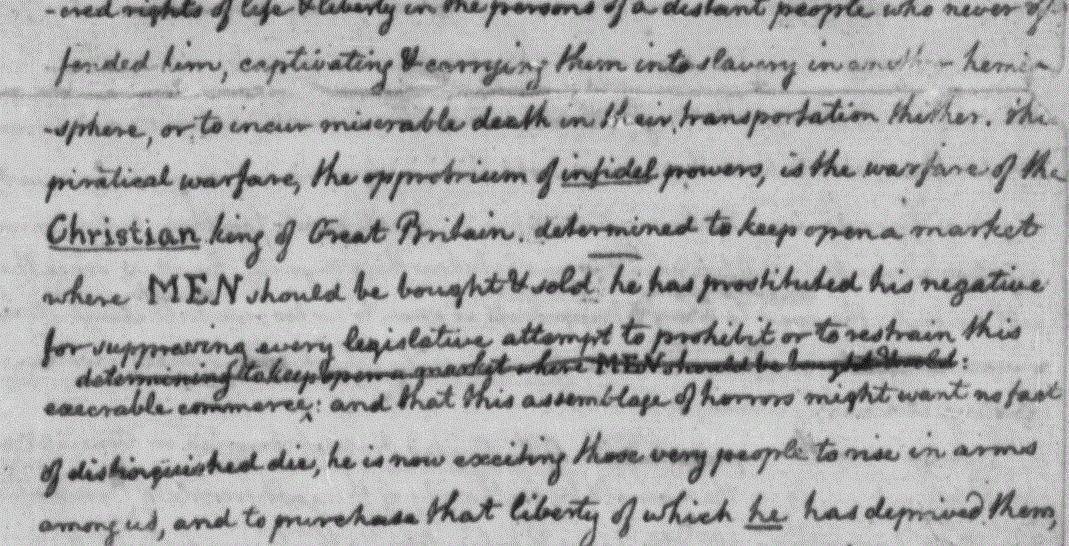 -cred rights of life & liberty in the persons of a distant people who never of-
fended him, captivating & carrying them into slavery in another hemi-
-sphere, or to incur miserable death in their transportation thither. this
piratical warfare, the opprobrium of infidel powers, is the warfare of the
Christian king of Great Britain. determined to keep open a market
where MEN should be bought & sold he has prostituted his negative
for suppressing every legislative attempt to prohibit or to restrain this
determining to keep open a market where MEN should be bought & sold:
execrable commerce: and that this assemblage of horrors might want no fact
of distinguished die, he is now exciting those very people to rise in arms
among us, and to purchase that liberty of which he has deprived them,